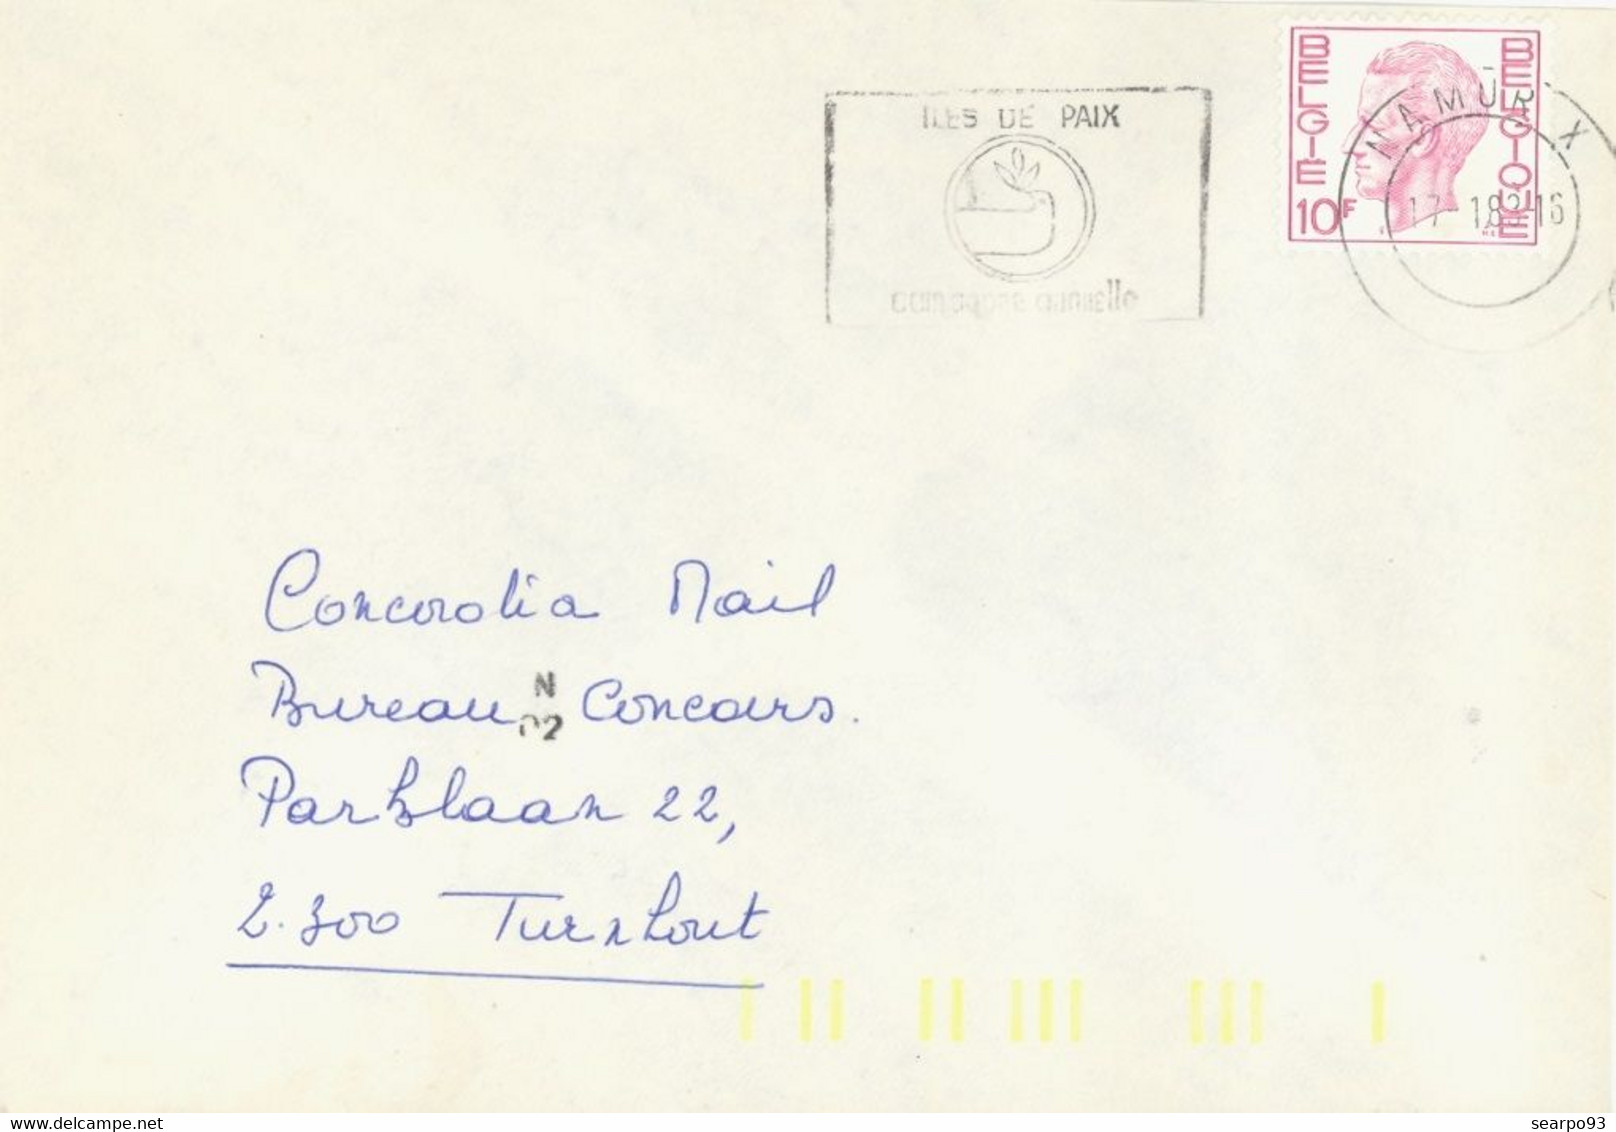 ILES DE PAIX
campagne annuelle
BELGIË
BELGIQUE
10F
NAMUR X
17-1 83 16
Concordia Mail
Bureau Concours.
N
02
Parklaan 22,
2.300 Turnhout
searpo93